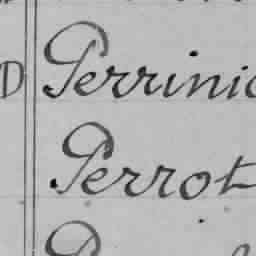 D Perrinic
Perrot
P